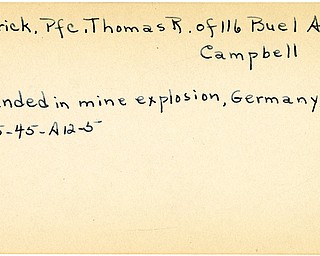 rick, Pfc. Thomas R. of 116 Buel A
Campbell
nded in mine explosion, Germany
5-45-A12-5